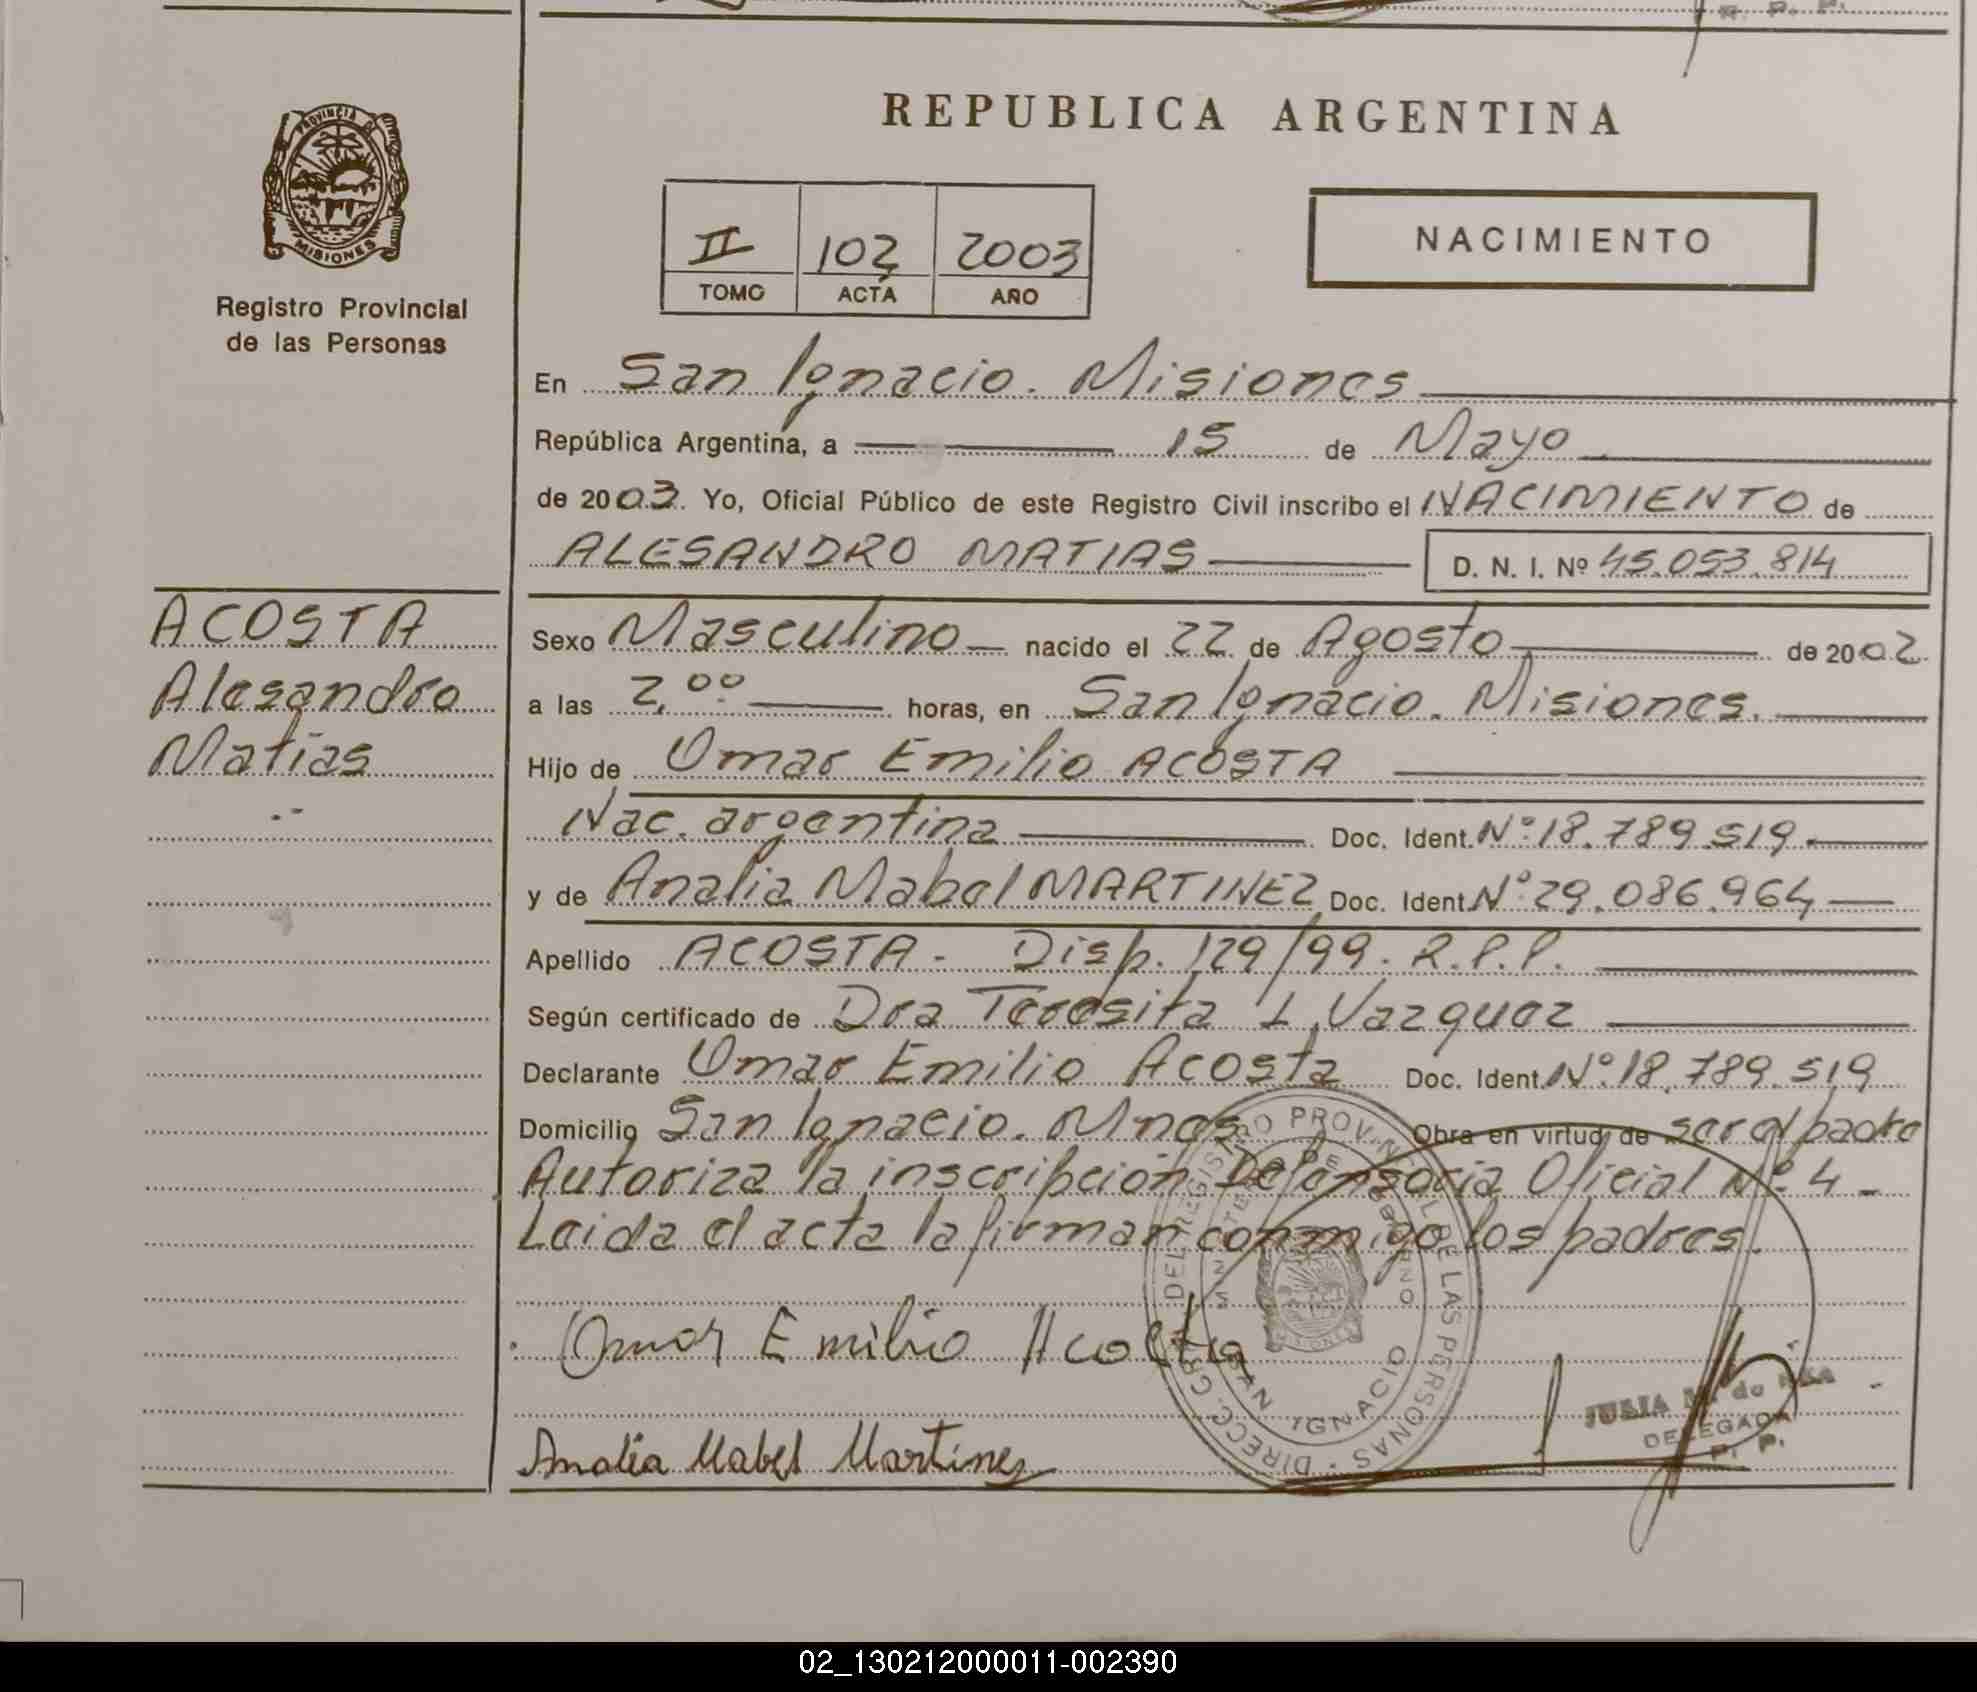 R. P. P.
PROVINCIA DE
MISIONES
Registro Provincial
de las Personas
REPUBLICA ARGENTINA
II 102 2003
TOMO ACTA AÑO
NACIMIENTO
En San Ignacio. Misiones
República Argentina, a 15 de Mayo
de 2003. Yo, Oficial Público de este Registro Civil inscribo el NACIMIENTO de
ALESANDRO MATIAS D. N. I. Nº 45.053.814
ACOSTA
Alesandro
Matias
Sexo Masculino nacido el 22 de Agosto de 2002
a las 2,00 horas, en San Ignacio. Misiones.
Hijo de Omar Emilio ACOSTA
Nac. argentina Doc. Ident. Nº 18.789.519
y de Analia Mabel MARTINEZ Doc. Ident. Nº 29.086.964
Apellido ACOSTA - Disp. 129/99. R.P.P.
Según certificado de Dra Teresita L. Vazquez
Declarante Omar Emilio Acosta Doc. Ident. Nº 18.789.519
Domicilio San Ignacio. Mnes Obra en virtud de ser el padre
Autoriza la inscripción Defensoria Oficial Nº 4 -
Leida el acta la firman conmigo los padres.
Omar Emilio Acosta
Analia Mabel Martinez
DIRECC. GRAL. DEL REGISTRO PROVINCIAL DE LAS PERSONAS
SAN IGNACIO
JULIA M. de
DELEGADA
P. P.
02_130212000011-002390